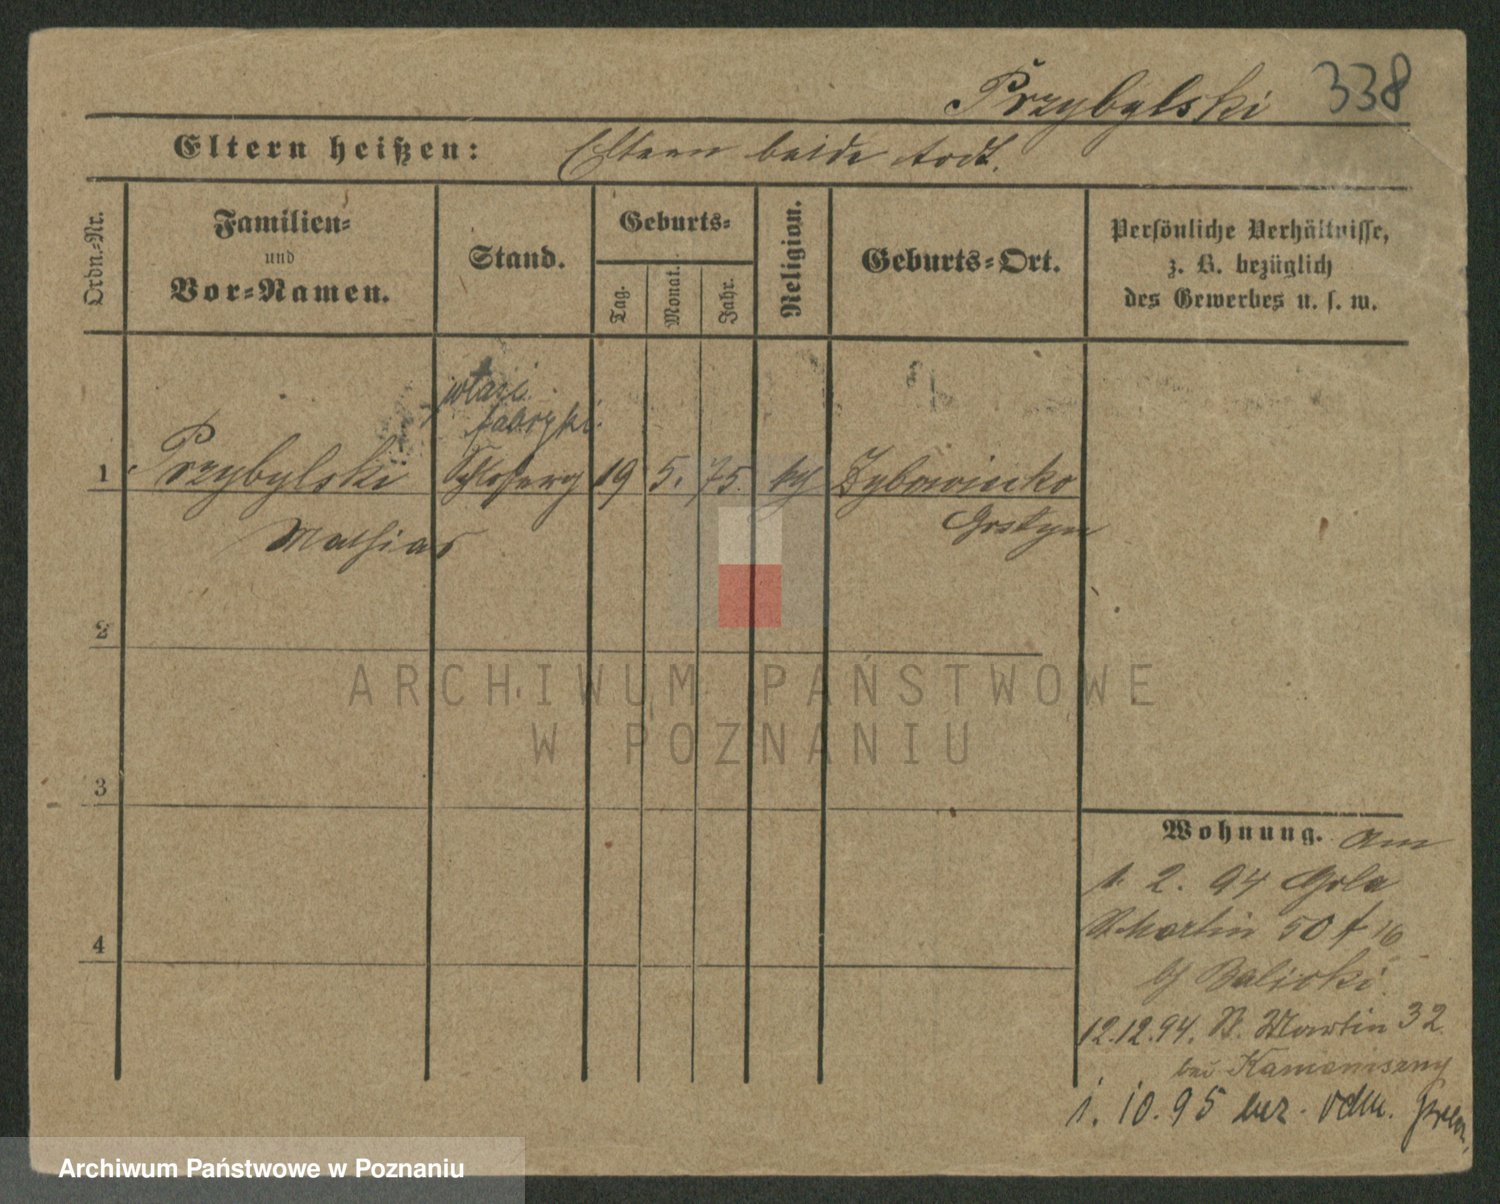 Przybylski 338
Eltern heißen: Eltern beide todt.
Ordn.-Nr.
Familien-
und
Vor-Namen.
Stand.
Geburts-
Tag.
Monat.
Jahr.
Religion.
Geburts-Ort.
Persönliche Verhältnisse,
z. B. bezüglich
des Gewerbes u. s. w.
fabryki
1 Przybylski 19 5. 75. kth
Mathias Gostyn
2
ARCHIWUM PAŃSTWOWE
W POZNANIU
3
Wohnung. am
1. 2. 94
St. Martin 50
4
b/ Balicki
12.12.94. St. Martin 32
bei
1. 10. 95
Archiwum Państwowe w Poznaniu